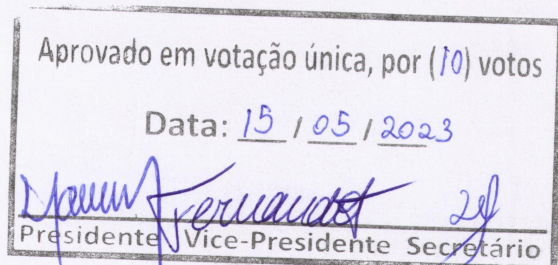 Aprovado em votação única, por (10) votos
Data: 15 / 05 / 2023
Fernandot
Presidente Vice-Presidente Secretário